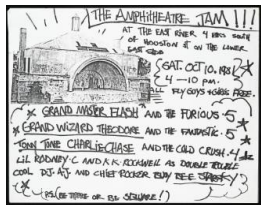 THE AMPHITHEATRE JAM!!!
AT THE EAST RIVER 4 BLKS SOUTH
OF HOUSTON ST ON THE LOWER
EAST SIDE
SAT. OCT. 10, 1981
4 — 10 P.M.
FLY GUYS + GIRLS FREE
GRAND MASTER FLASH AND THE FURIOUS - 5
GRAND WIZARD THEODORE AND THE FANTASTIC - 5
TONY TONE CHARLIE CHASE AND THE COLD CRUSH - 4
LIL RODNEY - C AND K.K. ROCKWELL AS DOUBLE TROUBLE
COOL DJ. A.J. AND CHIEF ROCKER BUSY BEE STARSKY
P.S. (BE THERE OR BE SQUARE!)